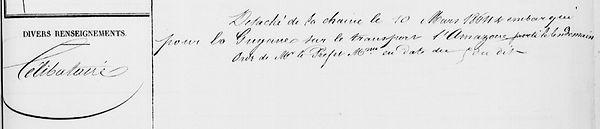 Détaché de la chaîne le 10 Mars 1864 & embarqué
DIVERS RENSEIGNEMENTS.
pour la Guyane sur le transport l'Amazone parti le lendemain
Célibataire
Ordre de Mr le Préfet Mme en date du 5 du dit